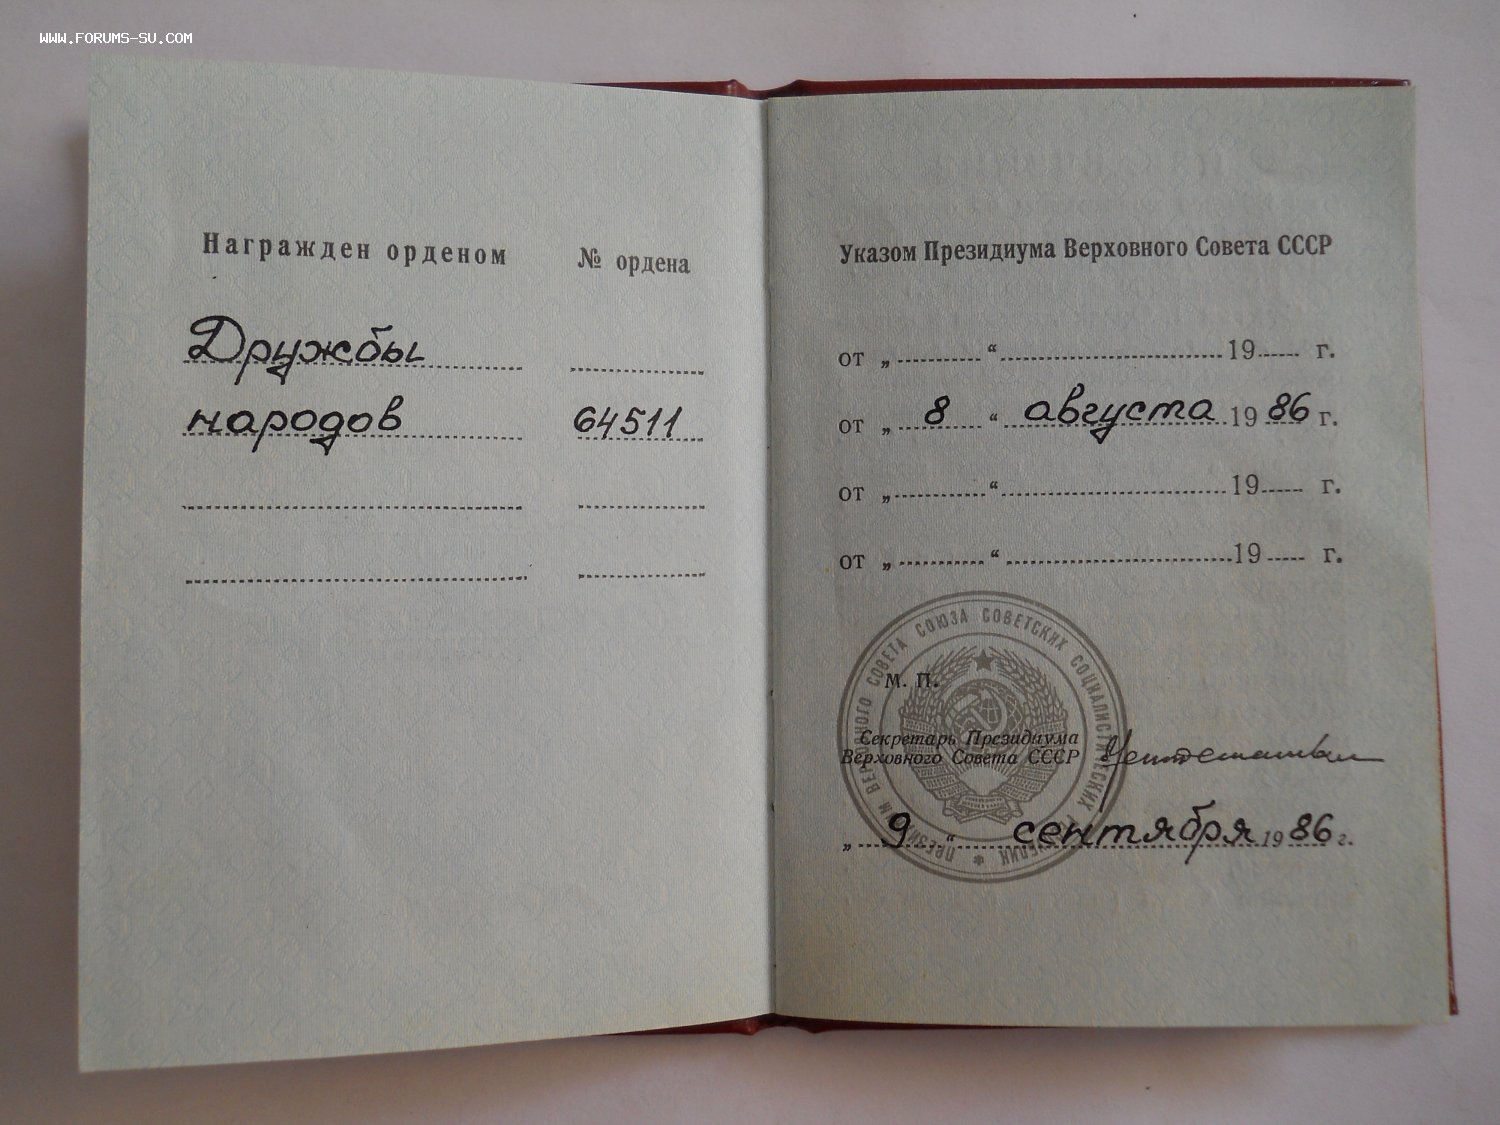 WWW.FORUMS-SU.COM
Награжден орденом № ордена
Дружбы
народов 64511
Указом Президиума Верховного Совета СССР
от „ “ 19 г.
от „ 8 “ августа 19 86 г.
от „ “ 19 г.
от „ “ 19 г.
ПРЕЗИДИУМ ВЕРХОВНОГО СОВЕТА СОЮЗА СОВЕТСКИХ СОЦИАЛИСТИЧЕСКИХ РЕСПУБЛИК *
М. П.
Секретарь Президиума
Верховного Совета СССР
„ 9 “ сентября 19 86 г.